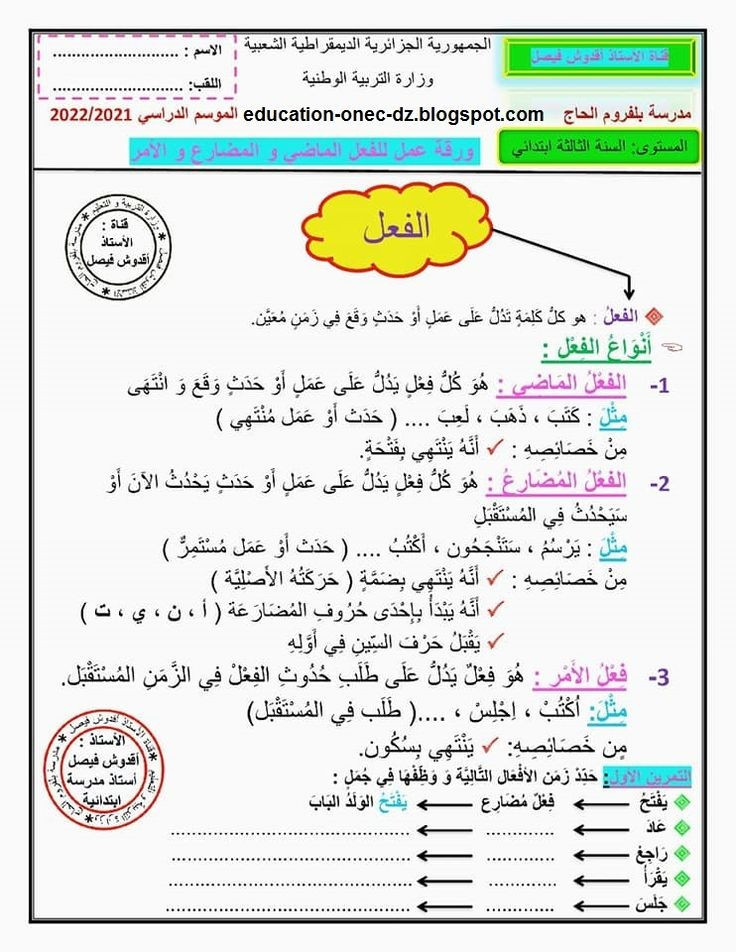 الجمهورية الجزائرية الديمقراطية الشعبية
وزارة التربية الوطنية
قناة الأستاذ أقدوش فيصل
الاسم : ...........................
اللقب: ............................
مدرسة بلفروم الحاج
education-onec-dz.blogspot.com
الموسم الدراسي 2022/2021
المستوى: السنة الثالثة ابتدائي
ورقة عمل للفعل الماضي و المضارع و الأمر
الفعل
قناة :
الأستاذ
أقدوش فيصل
الفعلُ : هو كلُّ كَلِمَةٍ تَدُلُّ عَلَى عَمَلٍ أَوْ حَدَثٍ وَقَعَ فِي زَمَنٍ مُعَيَّن.
أَنْوَاعُ الفِعْل :
1- الفَعْلُ المَاضِي : هُوَ كُلُّ فِعْلٍ يَدُلُّ عَلَى عَمَلٍ أَوْ حَدَثٍ وَقَعَ وَ انْتَهَى
مِثْلَ : كَتَبَ ، ذَهَبَ ، لَعِبَ .... ( حَدَث أَوْ عَمَل مُنْتَهِي )
مِنْ خَصَائِصِهِ : ✓ أَنَّهُ يَنْتَهِي بِفَتْحَةٍ.
2- الفَعْلُ المُضَارِعُ : هُوَ كُلُّ فِعْلٍ يَدُلُّ عَلَى عَمَلٍ أَوْ حَدَثٍ يَحْدُثُ الآنَ أَوْ
سَيَحْدُثُ فِي المُسْتَقْبَلِ
مِثْلَ : يَرْسُمُ ، سَتَنْجَحُون ، أَكْتُبُ .... ( حَدَث أَوْ عَمَل مُسْتَمِرٌّ )
مِنْ خَصَائِصِهِ : ✓ أَنَّهُ يَنْتَهِي بِضَمَّةٍ ( حَرَكَتُهُ الأَصْلِيَّة )
✓ أَنَّهُ يَبْدَأُ بِإِحْدَى حُرُوفِ المُضَارَعَة ( أ ، ن ، ي ، ت )
✓ يَقْبَلُ حَرْفَ السِّينِ فِي أَوَّلِهِ
3- فِعْلُ الأَمْرِ : هُوَ فِعْلٌ يَدُلُّ عَلَى طَلَبِ حُدُوثِ الفِعْلْ فِي الزَّمَنِ المُسْتَقْبَل.
مِثْلَ: اُكْتُبْ ، اِجْلِسْ ، ....( طَلَب فِي المُسْتَقْبَل)
مِن خَصَائِصِهِ: ✓ يَنْتَهِي بِسُكُون.
الأستاذ :
أقدوش فيصل
أستاذ مدرسة
ابتدائية
التمرين الاول: حَدِّدْ زَمَنَ الأَفْعَال التَّالِيَّة وَ وَظِّفْهَا فِي جُمَلٍ :
يَفْتَحُ فِعْلٌ مُضَارِع يَفْتَحُ الوَلَدُ البَابَ
عَادَ ............. .......................................
رَاجِعْ ............. .......................................
يَقْرَأُ ............. .......................................
جَلَسَ ............. .......................................